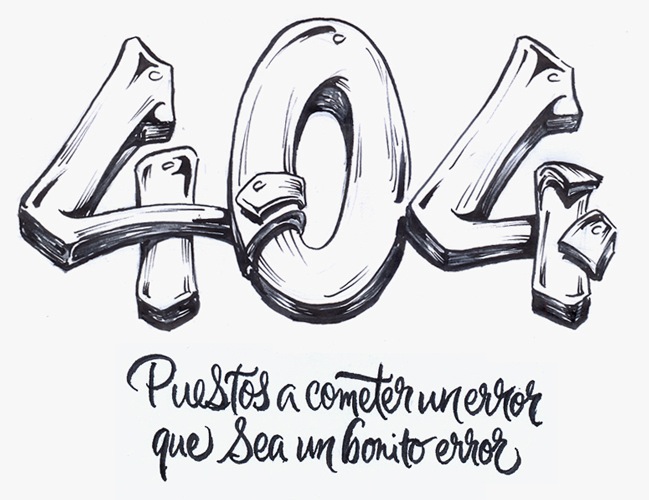 404
Puestos a cometer un error
que sea un bonito error